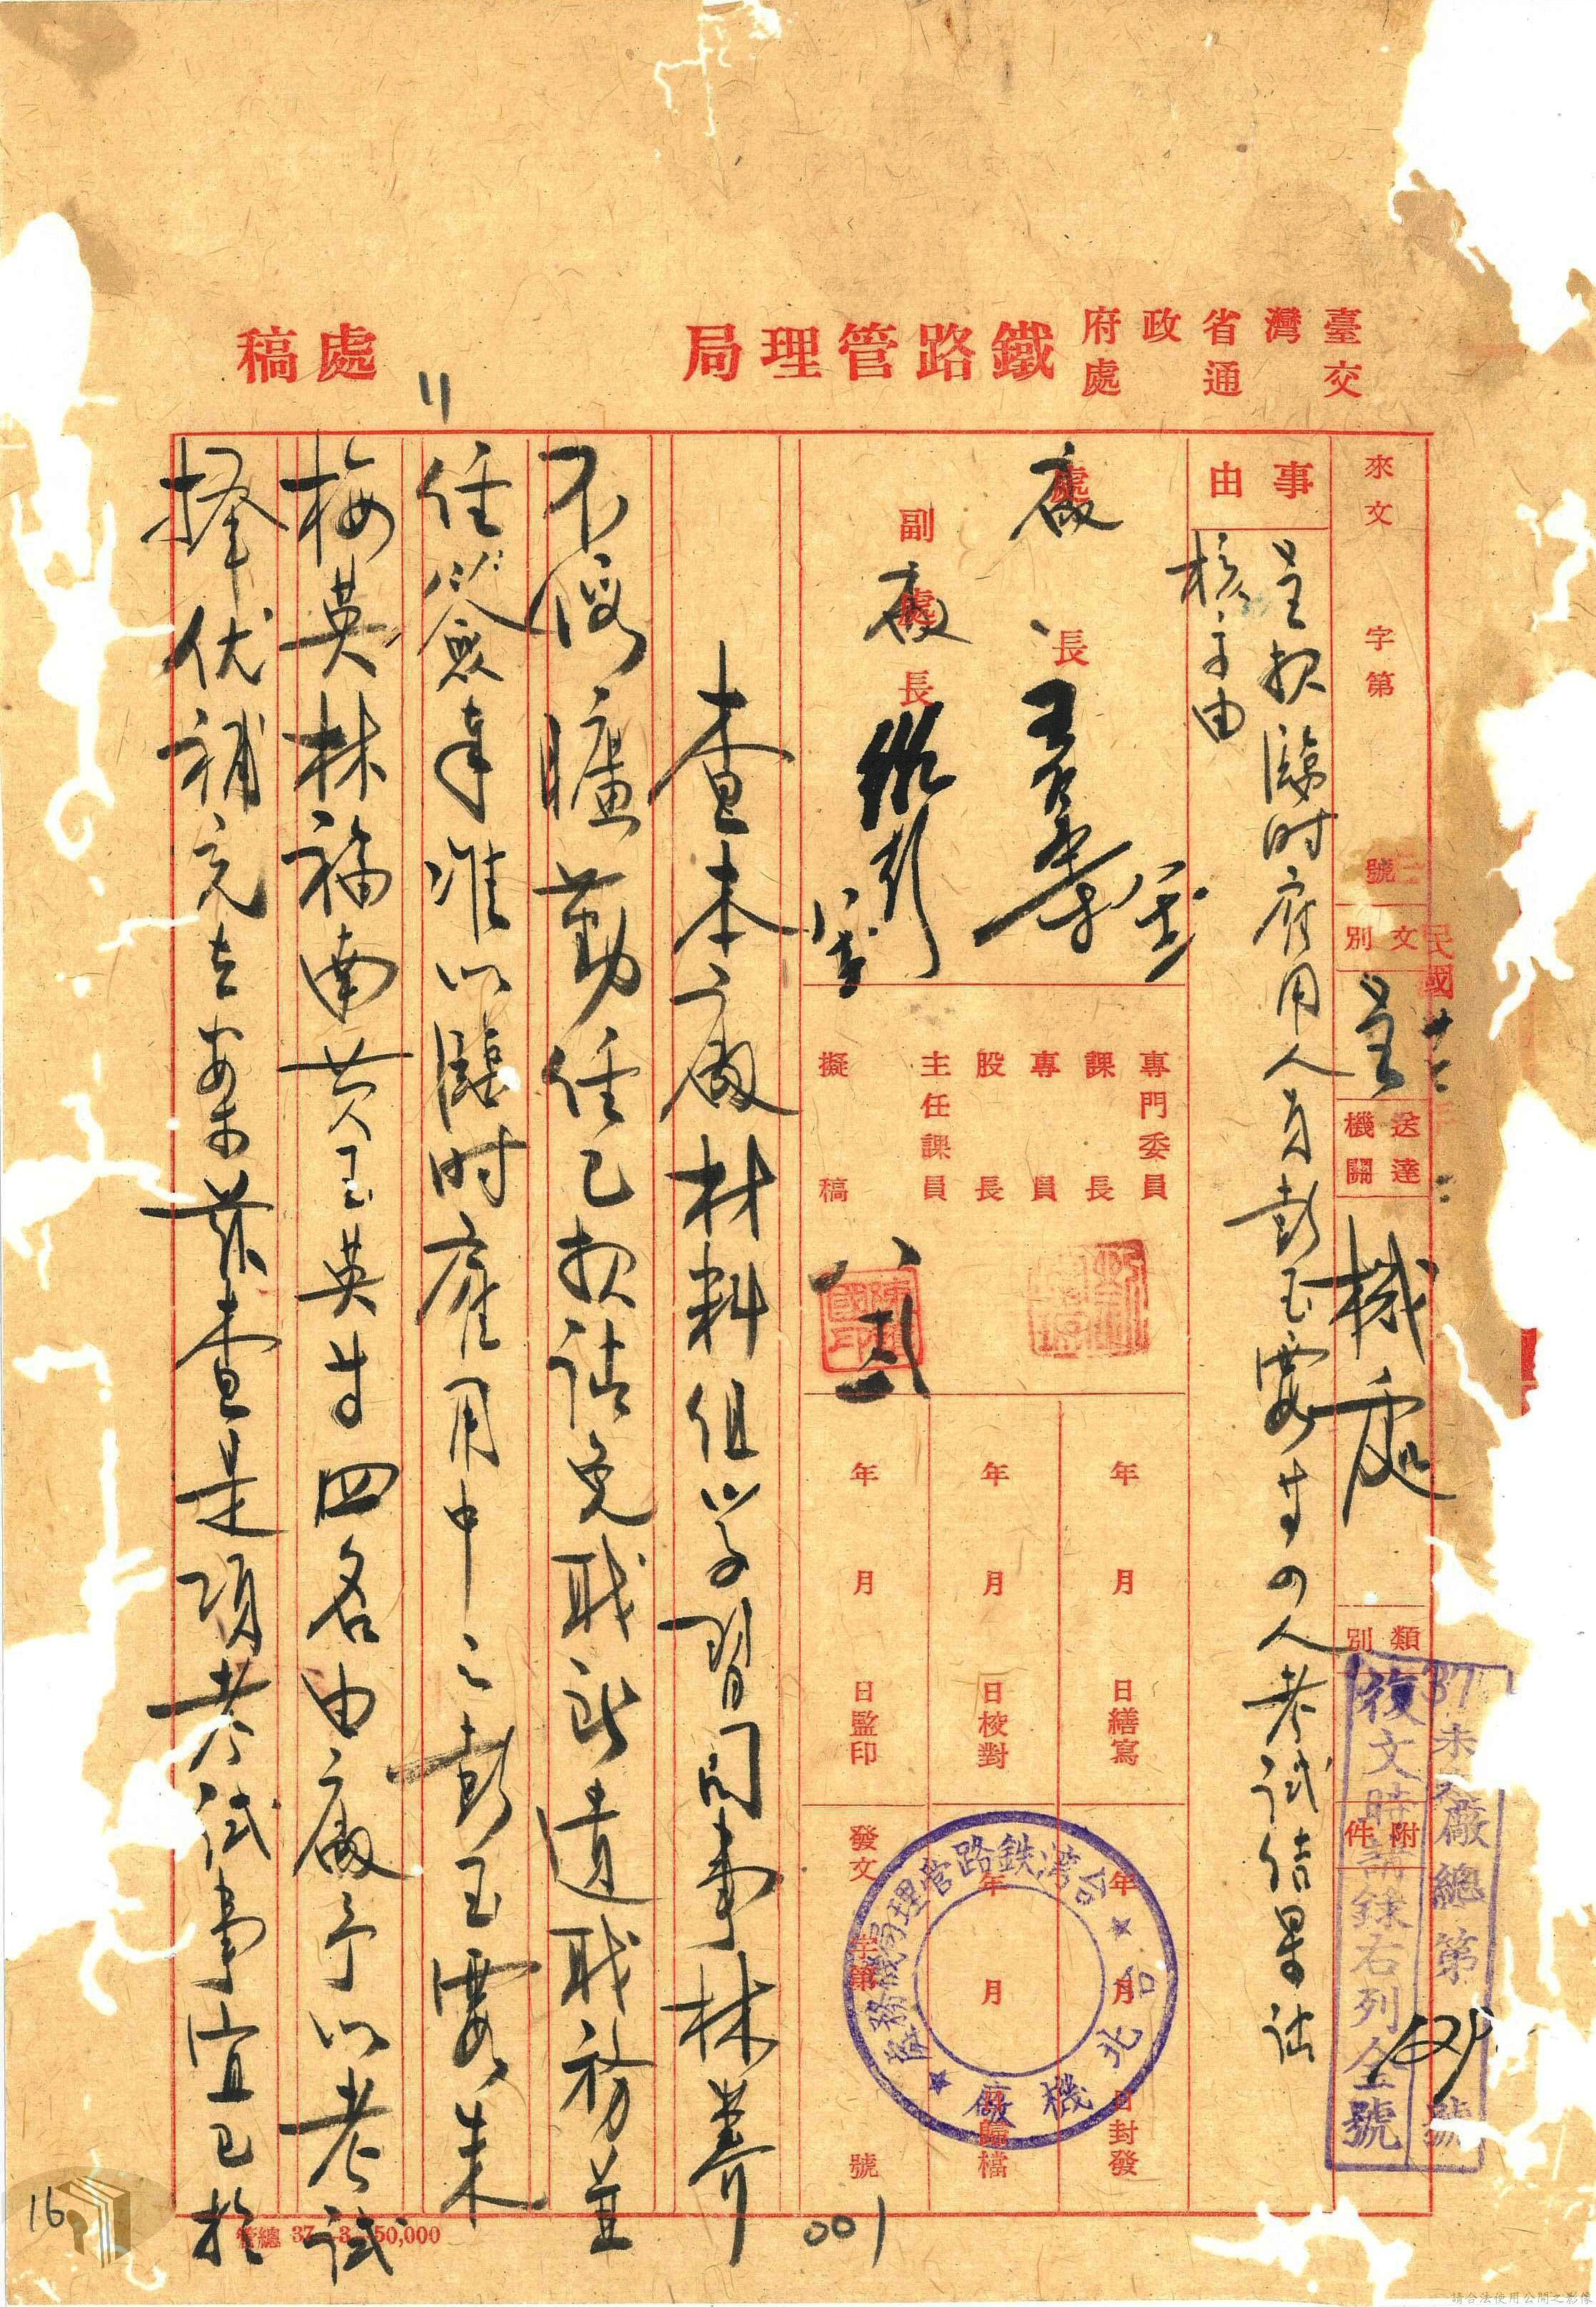 臺灣省政府
交通處
鐵路管理局
處稿
來文 字第 號
文別 呈
送達機關 機處
類別
附件
民國
37未 廠總第 號
復文時請錄右列全號
事由
呈報臨時雇用人員彭玉霞等四人考試結果請
核示由
處長 廠
副處長 廠
專門委員
課長
專員
股長
主任課員
擬稿
年 月 日繕寫
年 月 日校對
年 月 日監印
年 月 日封發
年 月 日歸檔
發文 字第 號
台灣鉄路管理局機務處
台北機廠
查本廠材料組學習司事林養
不假曠勤任已報請免職所遺職務並
任簽奉准以臨時雇用中之彭玉霞朱
梅英林福南黃玉英等四名由廠予以考試
擇優補充在案茲查是項考試事宜已於
001
16
管總 37 3 50,000
請合法使用公開之影像